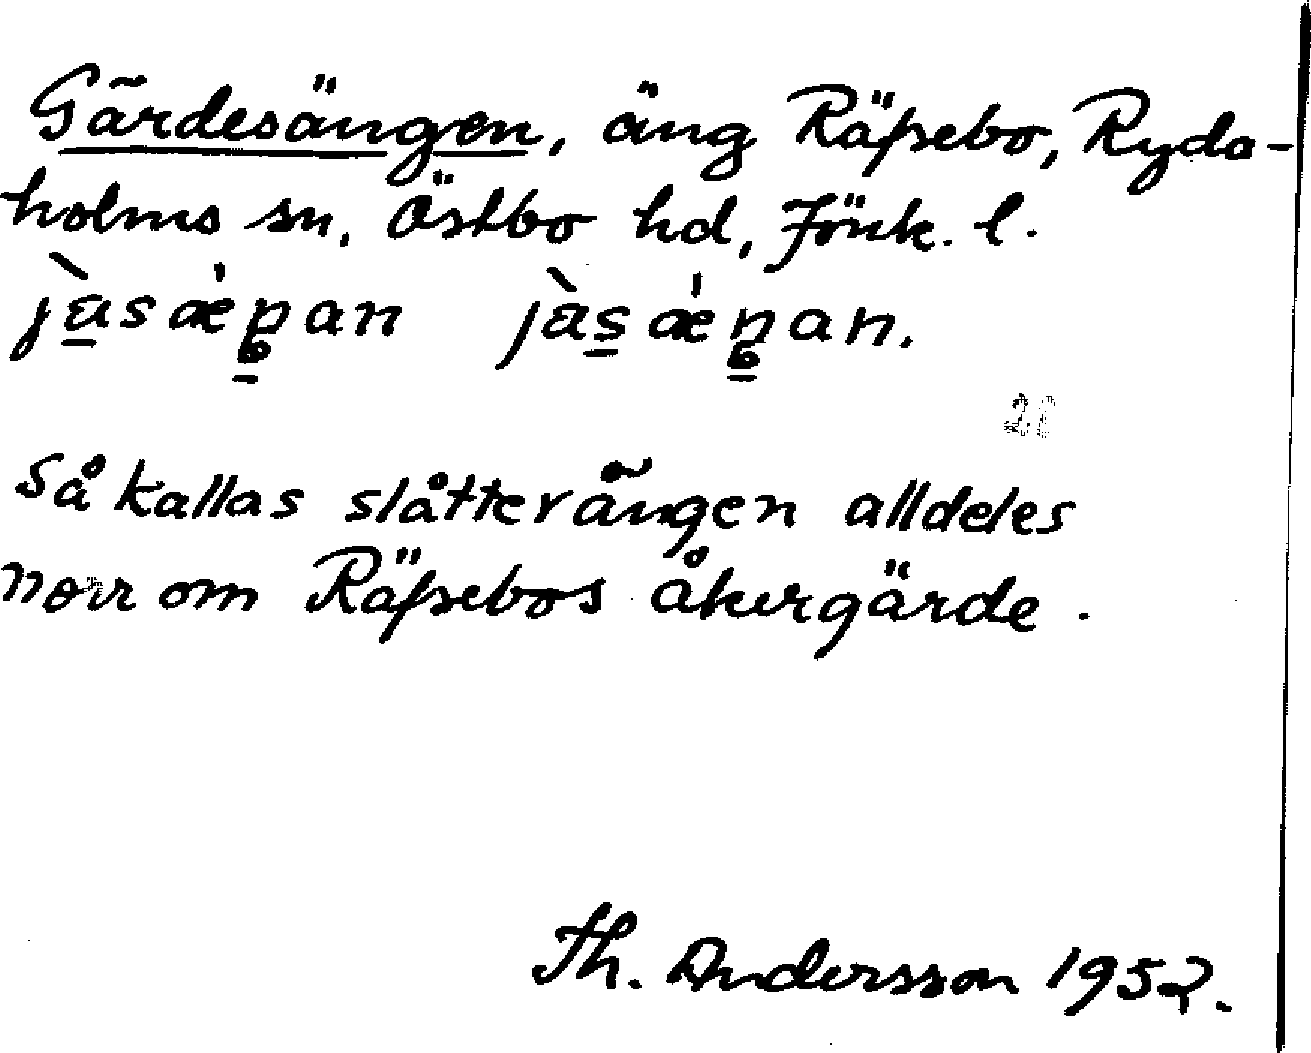 Gärdesängen, äng Räpsebo, Ryda-
holms sn, Östbo hd, Jönk. l.
Så kallas slåtterängen alldeles
norr om Räpsebos åkergärde.
Th. Andersson 1952.